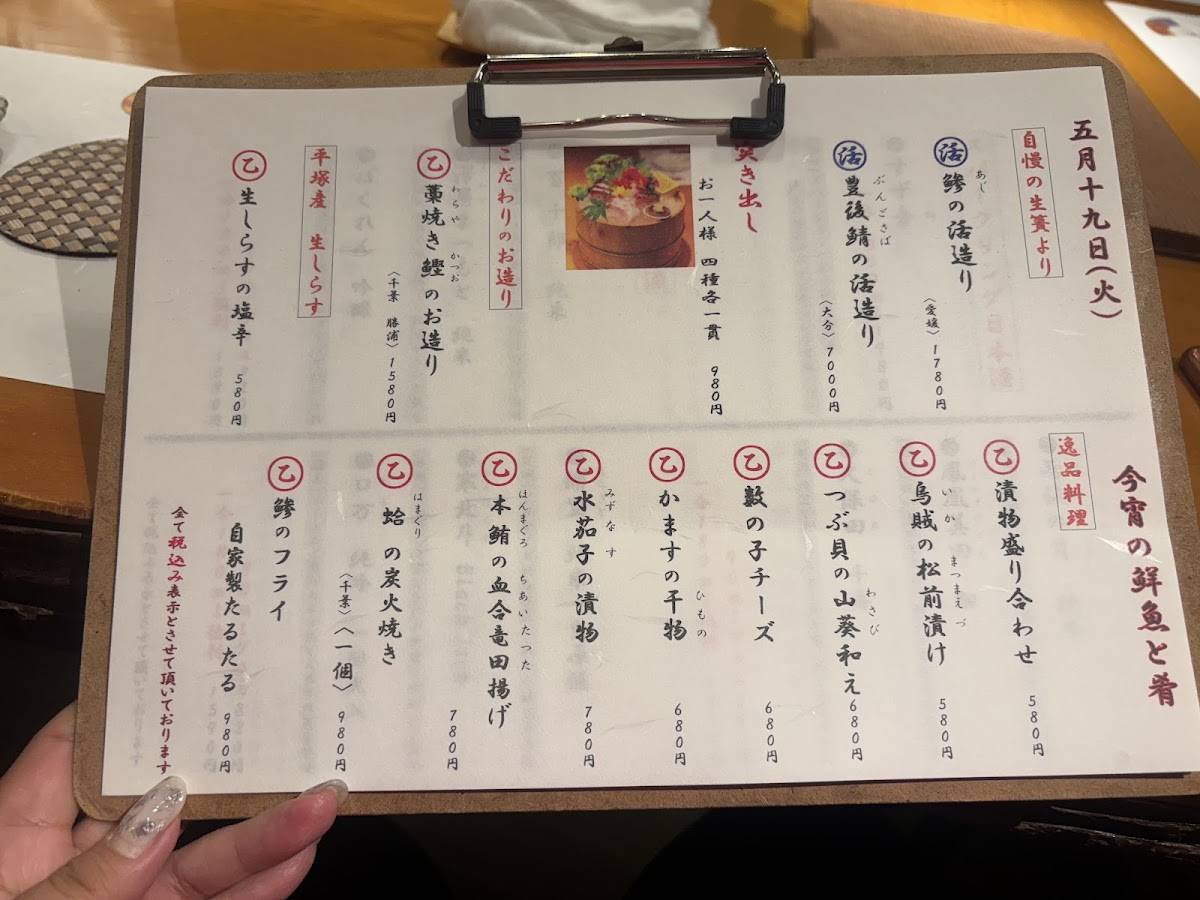 五月十九日(火)
今宵の鮮魚と肴
自慢の生簀より
活 鯵の活造り
あじ
〈愛媛〉1780円
活 豊後鯖の活造り
ぶんごさば
〈大分〉7000円
突き出し
お一人様 四種各一貫 980円
こだわりのお造り
乙 藁焼き鰹のお造り
わらや かつお
〈千葉 勝浦〉1580円
平塚産 生しらす
乙 生しらすの塩辛 580円
逸品料理
乙 漬物盛り合わせ 580円
乙 烏賊の松前漬け 580円
いか まつまえづ
乙 つぶ貝の山葵和え 680円
わさび
乙 数の子チーズ 680円
乙 かますの干物 680円
ひもの
乙 水茄子の漬物 780円
みずなす
乙 本鮪の血合竜田揚げ 780円
ほんまぐろ ちあいたつた
乙 蛤の炭火焼き
はまぐり
〈千葉〉〈一個〉 980円
乙 鯵のフライ
自家製たるたる 980円
全て税込み表示とさせて頂いております